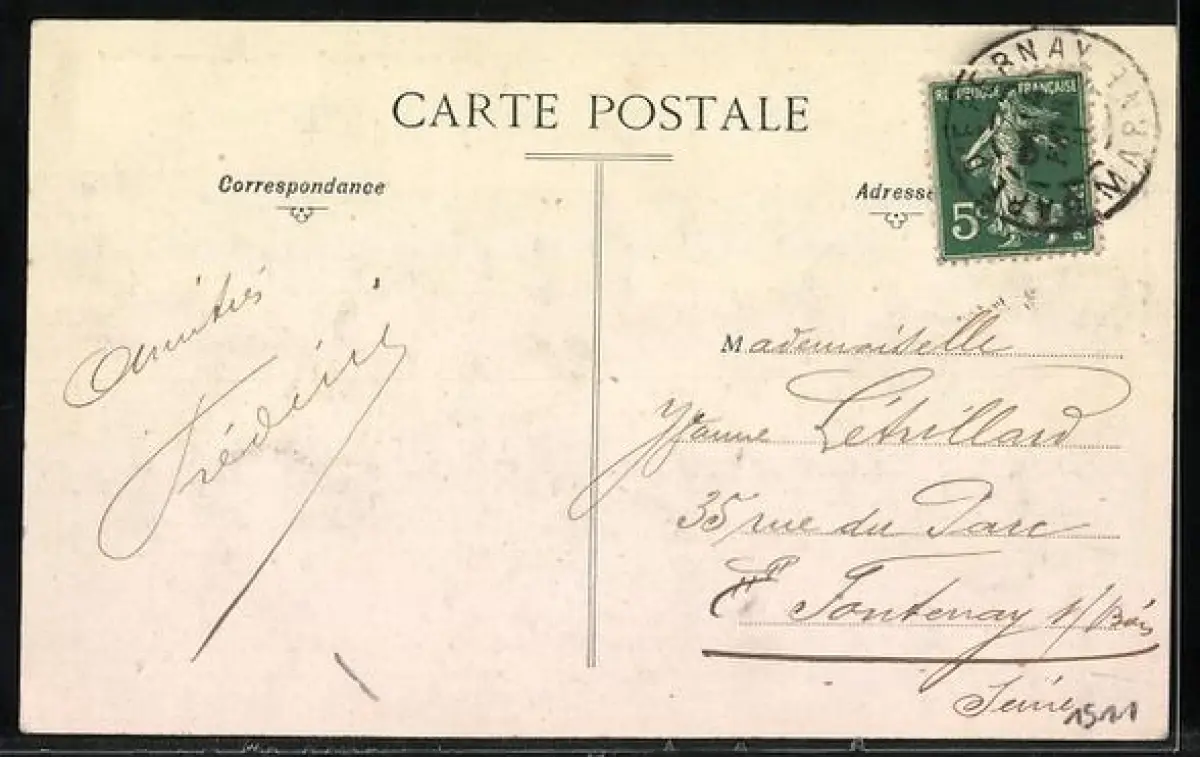 CARTE POSTALE
Correspondance
Adresse
RÉPUBLIQUE FRANÇAISE
5c
MARNE
Amitiés
Frédéric
Mademoiselle
Yvonne Létrillard
35 rue du Parc
Fontenay s/Bois
Seine
1911